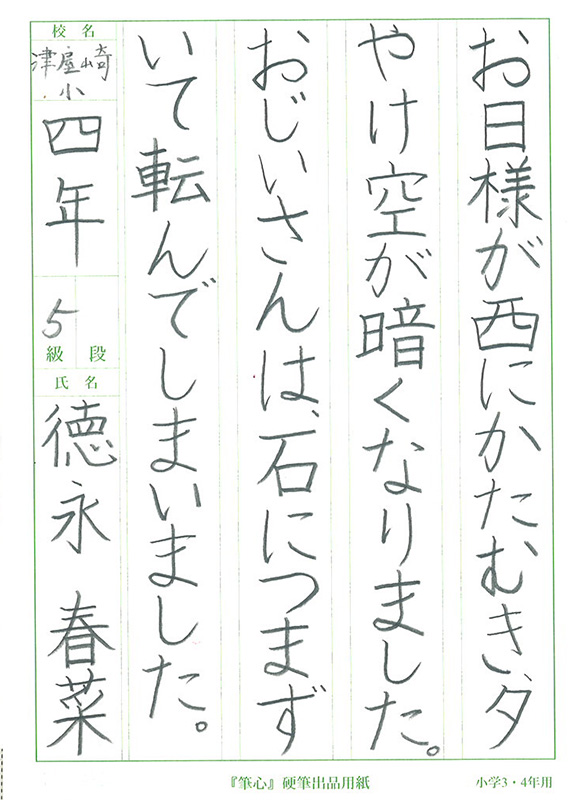 お日様が西にかたむき、夕
やけ空が暗くなりました。
おじいさんは、石につまず
いて転んでしまいました。
校名
津屋崎
小
四年
5
級 段
氏名
徳永 春菜
『筆心』硬筆出品用紙
小学3・4年用